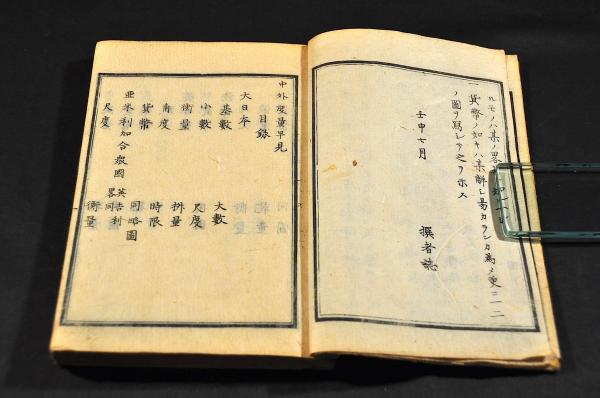 ルモノハ其ノ畧
貨幣ノ如キハ其解シ易カランカ為メ更ニ一二
ノ圖ヲ寫シテ之ヲ示ス
壬申七月
撰者誌
中外度量早見
目録
大日本
基數 大數
小數 尺度
衡量 桝量
舂度 時限
貨幣 同略圖
亜米利加合衆國 英吉利畧同
尺度 衡量